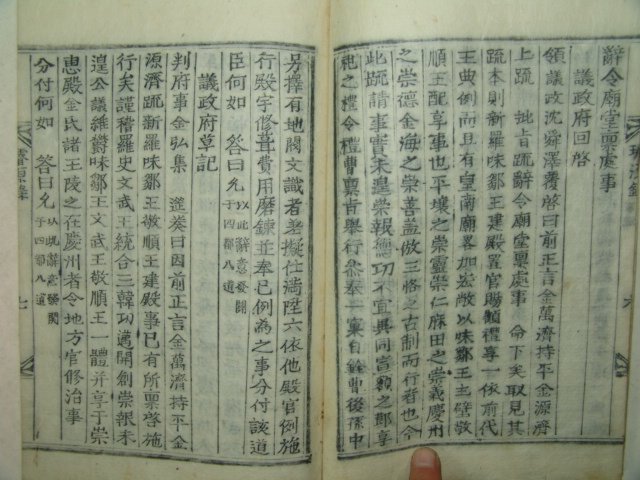 辭令廟堂稟處事
議政府回啓
領議政沈舜澤覆啓曰前正言金萬濟持平金源濟
上疏 批旨疏辭令廟堂稟處事 命下矣取見其
疏本則新羅味鄒王敬順王建殿置官賜額禮享一依前代
王典例而有皇南廟畧加宏敞以味鄒王主壁敬
順王配享事也平壤之崇靈崇仁麻田之崇義慶州
之崇德金海之崇善盖倣三恪之古制而行者也今
此疏請事寔未遑崇報德功不宜異同宣額之鄭享
祀之禮令禮曹稟旨擧行叅奉一窠自銓曹後孫中
另擇有地閥文識者差擬仕滿陞六依他殿官例施
行殿宇修葺費用磨鍊並奉已例為之事分付該道
臣何如 答曰允 以此辭意發關于四都八道
議政府草記
判府事金弘集 筵奏曰因前正言金萬濟持平金
源濟疏新羅味鄒王敬順王建殿事已有所稟啓施
行矣謹稽羅史文武王統合三韓功邁開創崇報未
遑公議維欝味鄒王文武王敬順王一體并享于崇
惠殿金氏諸王陵之在慶州者令地方官修治事
分付何如 答曰允 以此辭意發關于四都八道
七